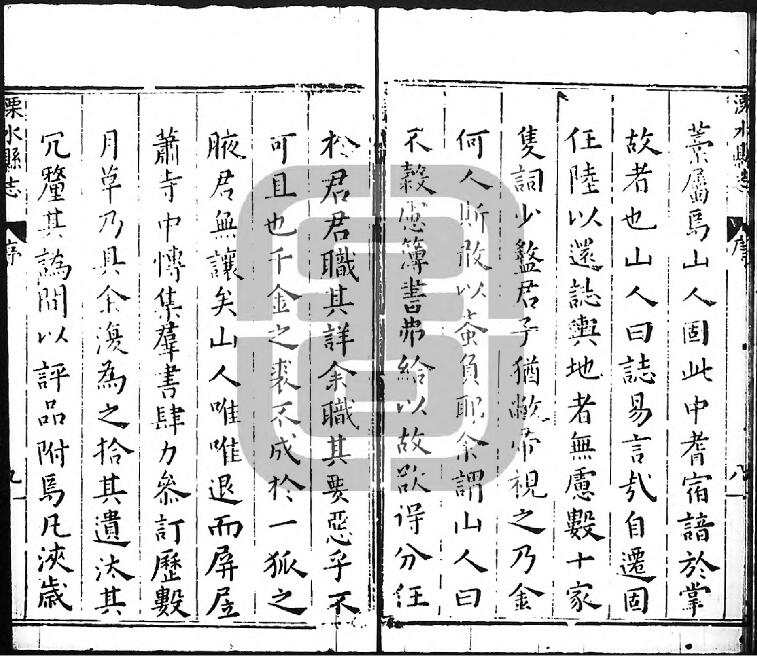 溧水縣志
序
八
藁屬焉山人固此中耆宿諳於掌
故者也山人曰誌易言哉自遷固
任陸以還誌輿地者無慮數十家
隻詞少盭君子猶敝帚視之乃金
何人斯敢以蚉負耶余謂山人曰
不穀慮簿書弗給以故欲得分任
於君君職其詳余職其要惡乎不
可且也千金之裘不成於一狐之
腋君無讓矣山人唯唯退而屏居
蕭寺中慱集羣書肆力叅訂歷數
月草乃具余湲為之拾其遺汰其
冗釐其譌間以評品附焉凡浹歲
溧水縣志
序
九